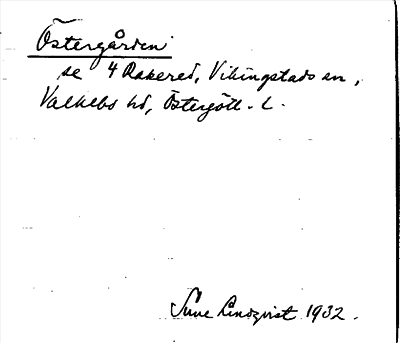 Östergården
se 4 Rakered, Vikingstads sn,
Valkebo hd, Östergötl. L.
Sune Lindqvist 1932.